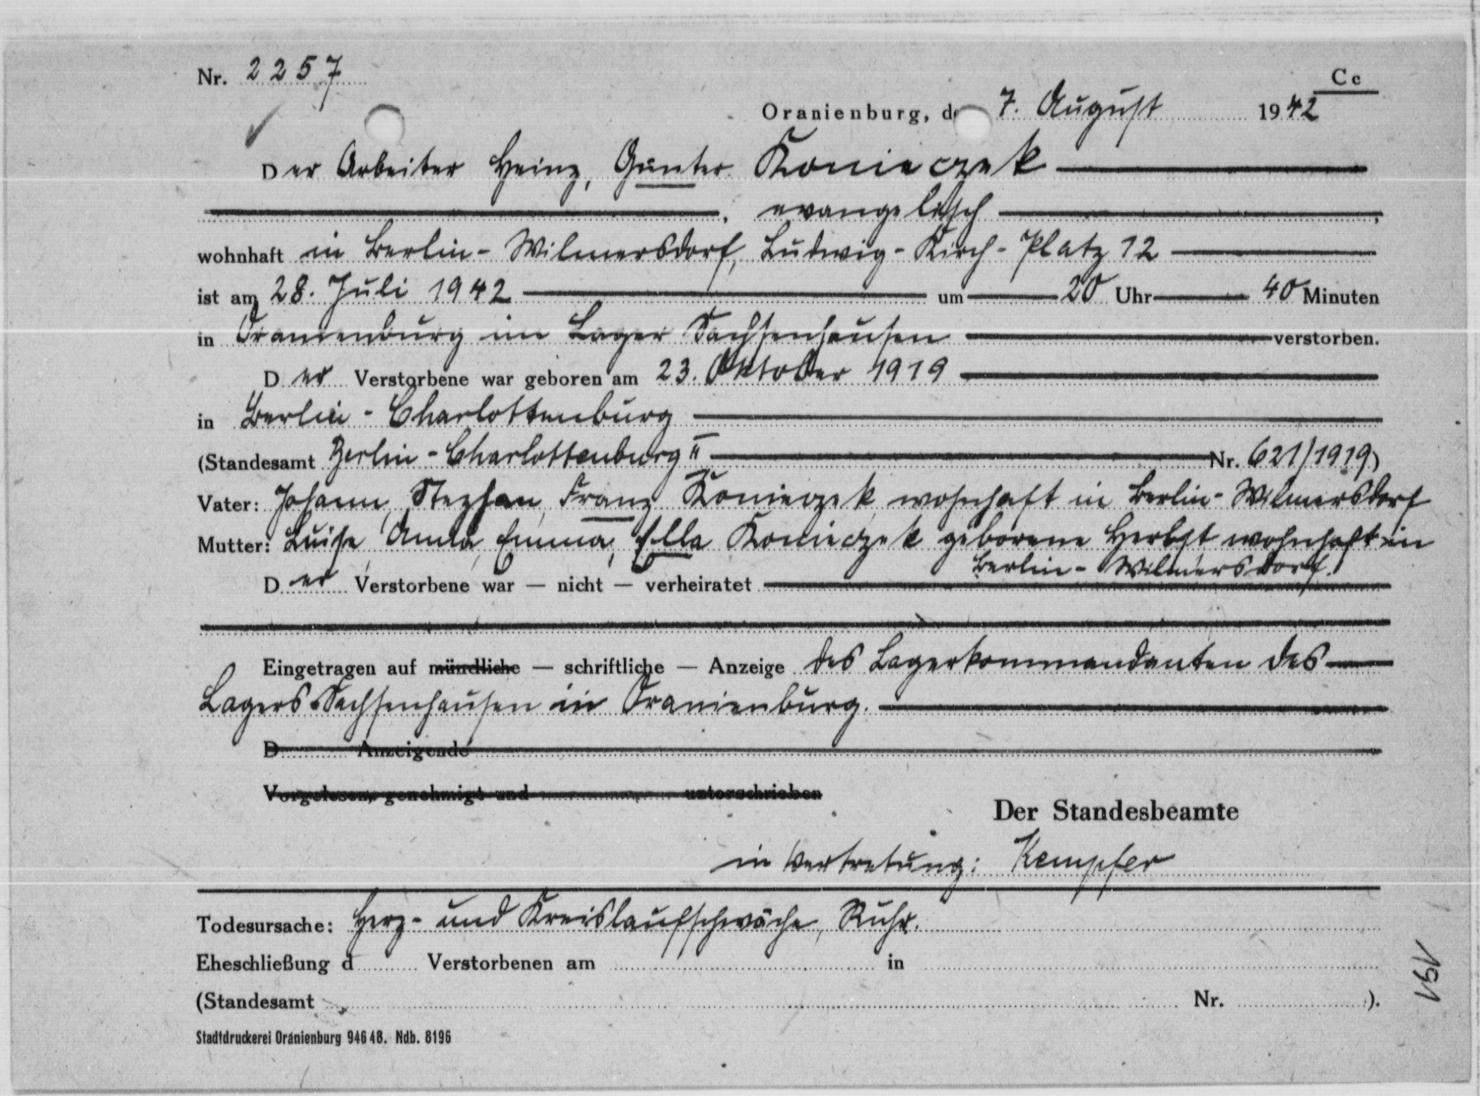 Nr. 2257
Cc
Oranienburg, d 7. August 1942
Der Arbeiter Heinz, Günter Konieczek
, evangelisch ,
wohnhaft in Berlin-Wilmersdorf, Ludwig-Kirch-Platz 12
ist am 28. Juli 1942 um 20 Uhr 40 Minuten
in Oranienburg im Lager Sachsenhausen verstorben.
Der Verstorbene war geboren am 23. Oktober 1919
in Berlin-Charlottenburg
(Standesamt Berlin-Charlottenburg II Nr. 621/1919)
Vater: Johann, Stephan, Franz Konieczek, wohnhaft in Berlin-Wilmersdorf
Mutter: Luise, Anna, Emma, Ella Konieczek geborene Herbst wohnhaft in
Berlin-Wilmersdorf.
Der Verstorbene war — nicht — verheiratet
Eingetragen auf mündliche — schriftliche — Anzeige des Lagerkommandanten des
Lagers Sachsenhausen in Oranienburg.
D Anzeigende
Vorgelesen, genehmigt und unterschrieben
Der Standesbeamte
in Vertretung: Kempfer
Todesursache: Herz- und Kreislaufschwäche, Ruhr.
Eheschließung d Verstorbenen am in
(Standesamt Nr. ).
Stadtdruckerei Oranienburg 946 48. Ndb. 8196
151